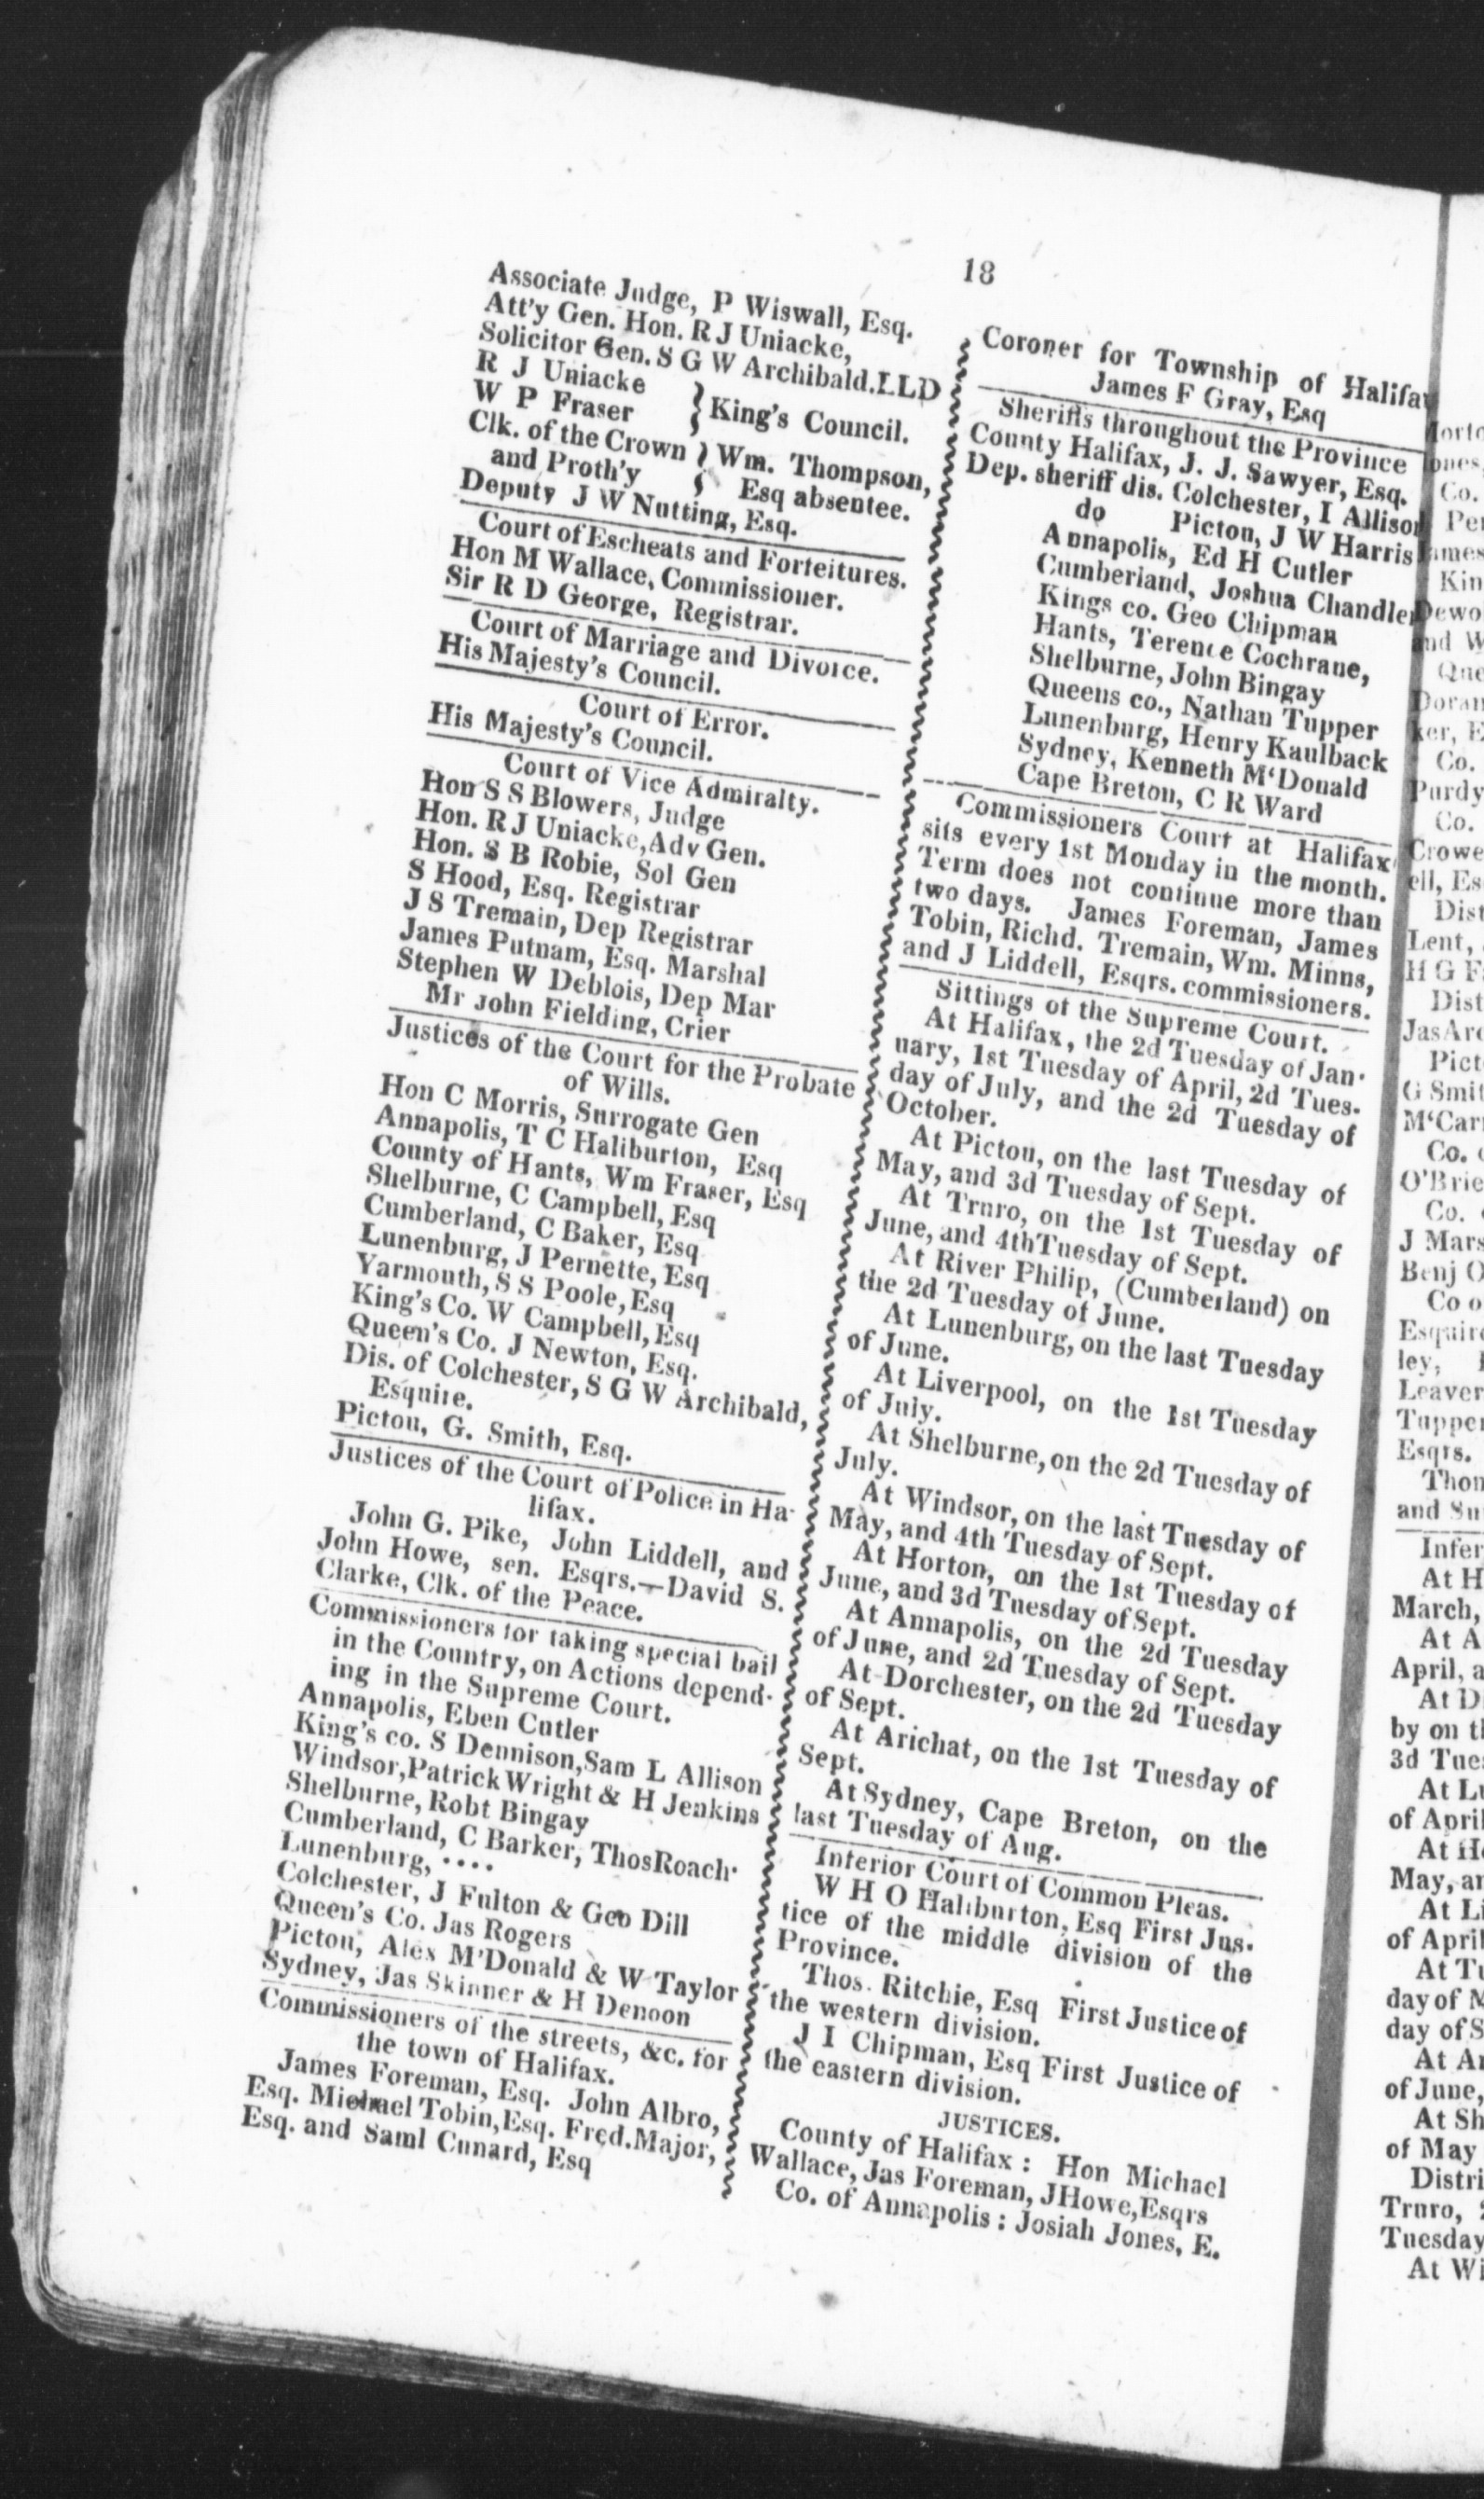 18
Associate Judge, P Wiswall, Esq.
Att'y Gen. Hon. R J Uniacke,
Solicitor Gen. S G W Archibald.LLD
R J Uniacke
W P Fraser } King's Council.
Clk. of the Crown } Wm. Thompson,
and Proth'y } Esq absentee.
Deputy J W Nutting, Esq.
Court of Escheats and Forfeitures.
Hon M Wallace, Commissioner.
Sir R D George, Registrar.
Court of Marriage and Divorce.
His Majesty's Council.
Court of Error.
His Majesty's Council.
Court of Vice Admiralty.
Hon S S Blowers, Judge
Hon. R J Uniacke, Adv Gen.
Hon. S B Robie, Sol Gen
S Hood, Esq. Registrar
J S Tremain, Dep Registrar
James Putnam, Esq. Marshal
Stephen W Deblois, Dep Mar
Mr John Fielding, Crier
Justices of the Court for the Probate
of Wills.
Hon C Morris, Surrogate Gen
Annapolis, T C Haliburton, Esq
County of Hants, Wm Fraser, Esq
Shelburne, C Campbell, Esq
Cumberland, C Baker, Esq
Lunenburg, J Pernette, Esq
Yarmouth, S S Poole, Esq
King's Co. W Campbell, Esq
Queen's Co. J Newton, Esq.
Dis. of Colchester, S G W Archibald,
Esquire.
Pictou, G. Smith, Esq.
Justices of the Court of Police in Ha-
lifax.
John G. Pike, John Liddell, and
John Howe, sen. Esqrs.—David S.
Clarke, Clk. of the Peace.
Commissioners for taking special bail
in the Country, on Actions depend-
ing in the Supreme Court.
Annapolis, Eben Cutler
King's co. S Dennison, Sam L Allison
Windsor, Patrick Wright & H Jenkins
Shelburne, Robt Bingay
Cumberland, C Barker, Thos Roach·
Lunenburg, ....
Colchester, J Fulton & Geo Dill
Queen's Co. Jas Rogers
Pictou, Alex M'Donald & W Taylor
Sydney, Jas Skinner & H Denoon
Commissioners of the streets, &c. for
the town of Halifax.
James Foreman, Esq. John Albro,
Esq. Michael Tobin, Esq. Fred. Major,
Esq. and Saml Cunard, Esq
Coroner for Township of Halifax
James F Gray, Esq
Sheriffs throughout the Province
County Halifax, J. J. Sawyer, Esq.
Dep. sheriff dis. Colchester, I Allison
do Picton, J W Harris
Annapolis, Ed H Cutler
Cumberland, Joshua Chandler
Kings co. Geo Chipman
Hants, Terence Cochrane,
Shelburne, John Bingay
Queens co., Nathan Tupper
Lunenburg, Henry Kaulback
Sydney, Kenneth M'Donald
Cape Breton, C R Ward
Commissioners Court at Halifax
sits every 1st Monday in the month.
Term does not continue more than
two days. James Foreman, James
Tobin, Richd. Tremain, Wm. Minns,
and J Liddell, Esqrs. commissioners.
Sittings of the Supreme Court.
At Halifax, the 2d Tuesday of Jan-
uary, 1st Tuesday of April, 2d Tues-
day of July, and the 2d Tuesday of
October.
At Pictou, on the last Tuesday of
May, and 3d Tuesday of Sept.
At Truro, on the 1st Tuesday of
June, and 4th Tuesday of Sept.
At River Philip, (Cumberland) on
the 2d Tuesday of June.
At Lunenburg, on the last Tuesday
of June.
At Liverpool, on the 1st Tuesday
of July.
At Shelburne, on the 2d Tuesday of
July.
At Windsor, on the last Tuesday of
May, and 4th Tuesday of Sept.
At Horton, on the 1st Tuesday of
June, and 3d Tuesday of Sept.
At Annapolis, on the 2d Tuesday
of June, and 2d Tuesday of Sept.
At Dorchester, on the 2d Tuesday
of Sept.
At Arichat, on the 1st Tuesday of
Sept.
At Sydney, Cape Breton, on the
last Tuesday of Aug.
Interior Court of Common Pleas.
W H O Haliburton, Esq First Jus-
tice of the middle division of the
Province.
Thos. Ritchie, Esq First Justice of
the western division.
J I Chipman, Esq First Justice of
the eastern division.
JUSTICES.
County of Halifax : Hon Michael
Wallace, Jas Foreman, J Howe, Esqrs
Co. of Annapolis : Josiah Jones, E.
Co.
Kin
Co.
Purdy
Co.
Crowe
ell, Es
Dist
Lent,
H G F
Dist
Jas Arc
Pict
G Smit
M'Car
Co.
O'Brie
Co.
J Mars
Benj O
Co o
Esquire
ley,
Leaver
Tupper
Esqrs.
Thom
and Su
Infer
At H
March,
At A
April, a
At D
by on t
3d Tues
At Lu
of April
At Ho
May, an
At Li
of April
At Tu
day of M
day of S
At Ar
of June,
At Sh
of May
Distri
Truro, 2
Tuesday
At Wi